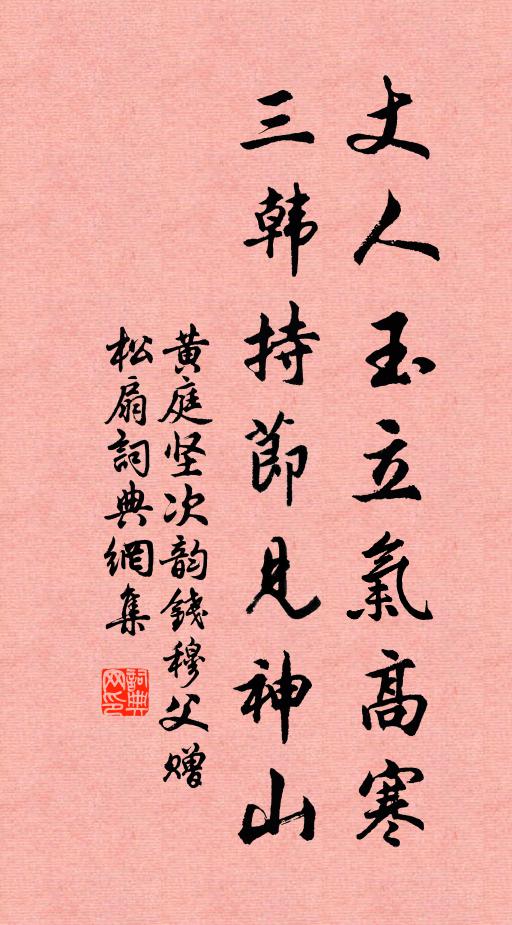 丈人玉立氣高寒
三韩持節見神山
黄庭坚次韵錢穆父赠
松扇詞典網集
詞典網印